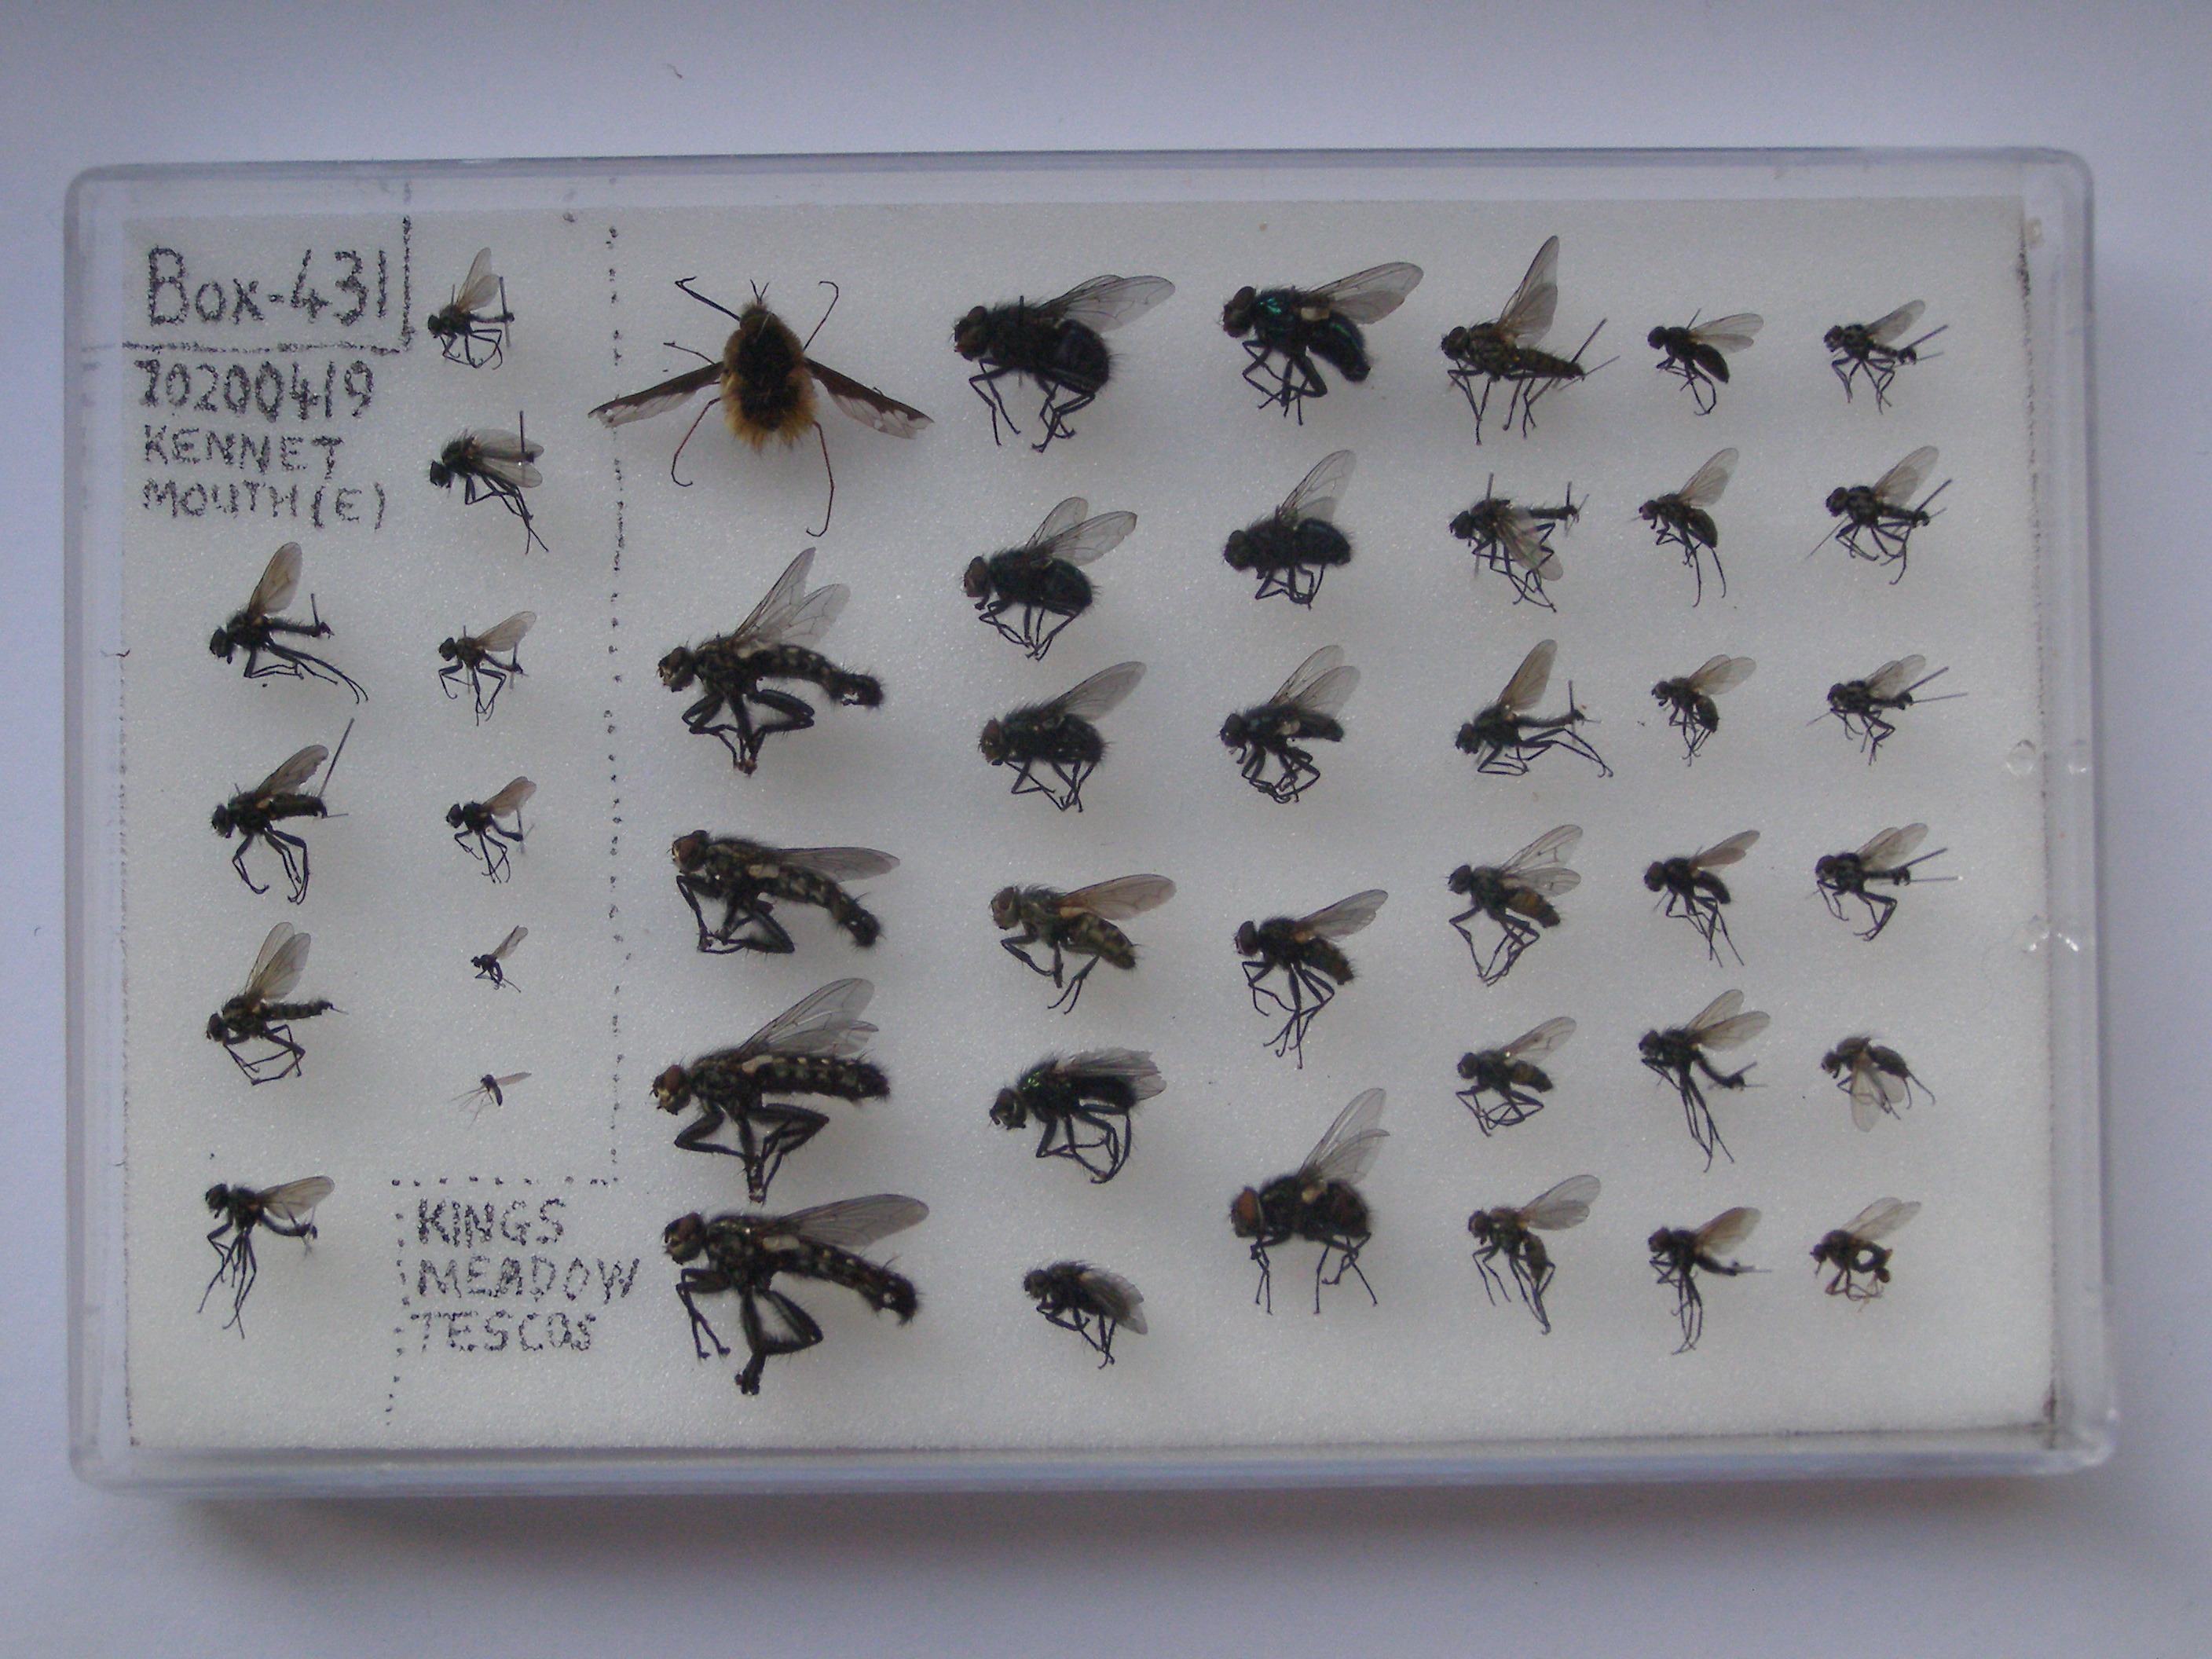 Box-431
20200419
KENNET
MOUTH(E)
KINGS
MEADOW
TESCOS